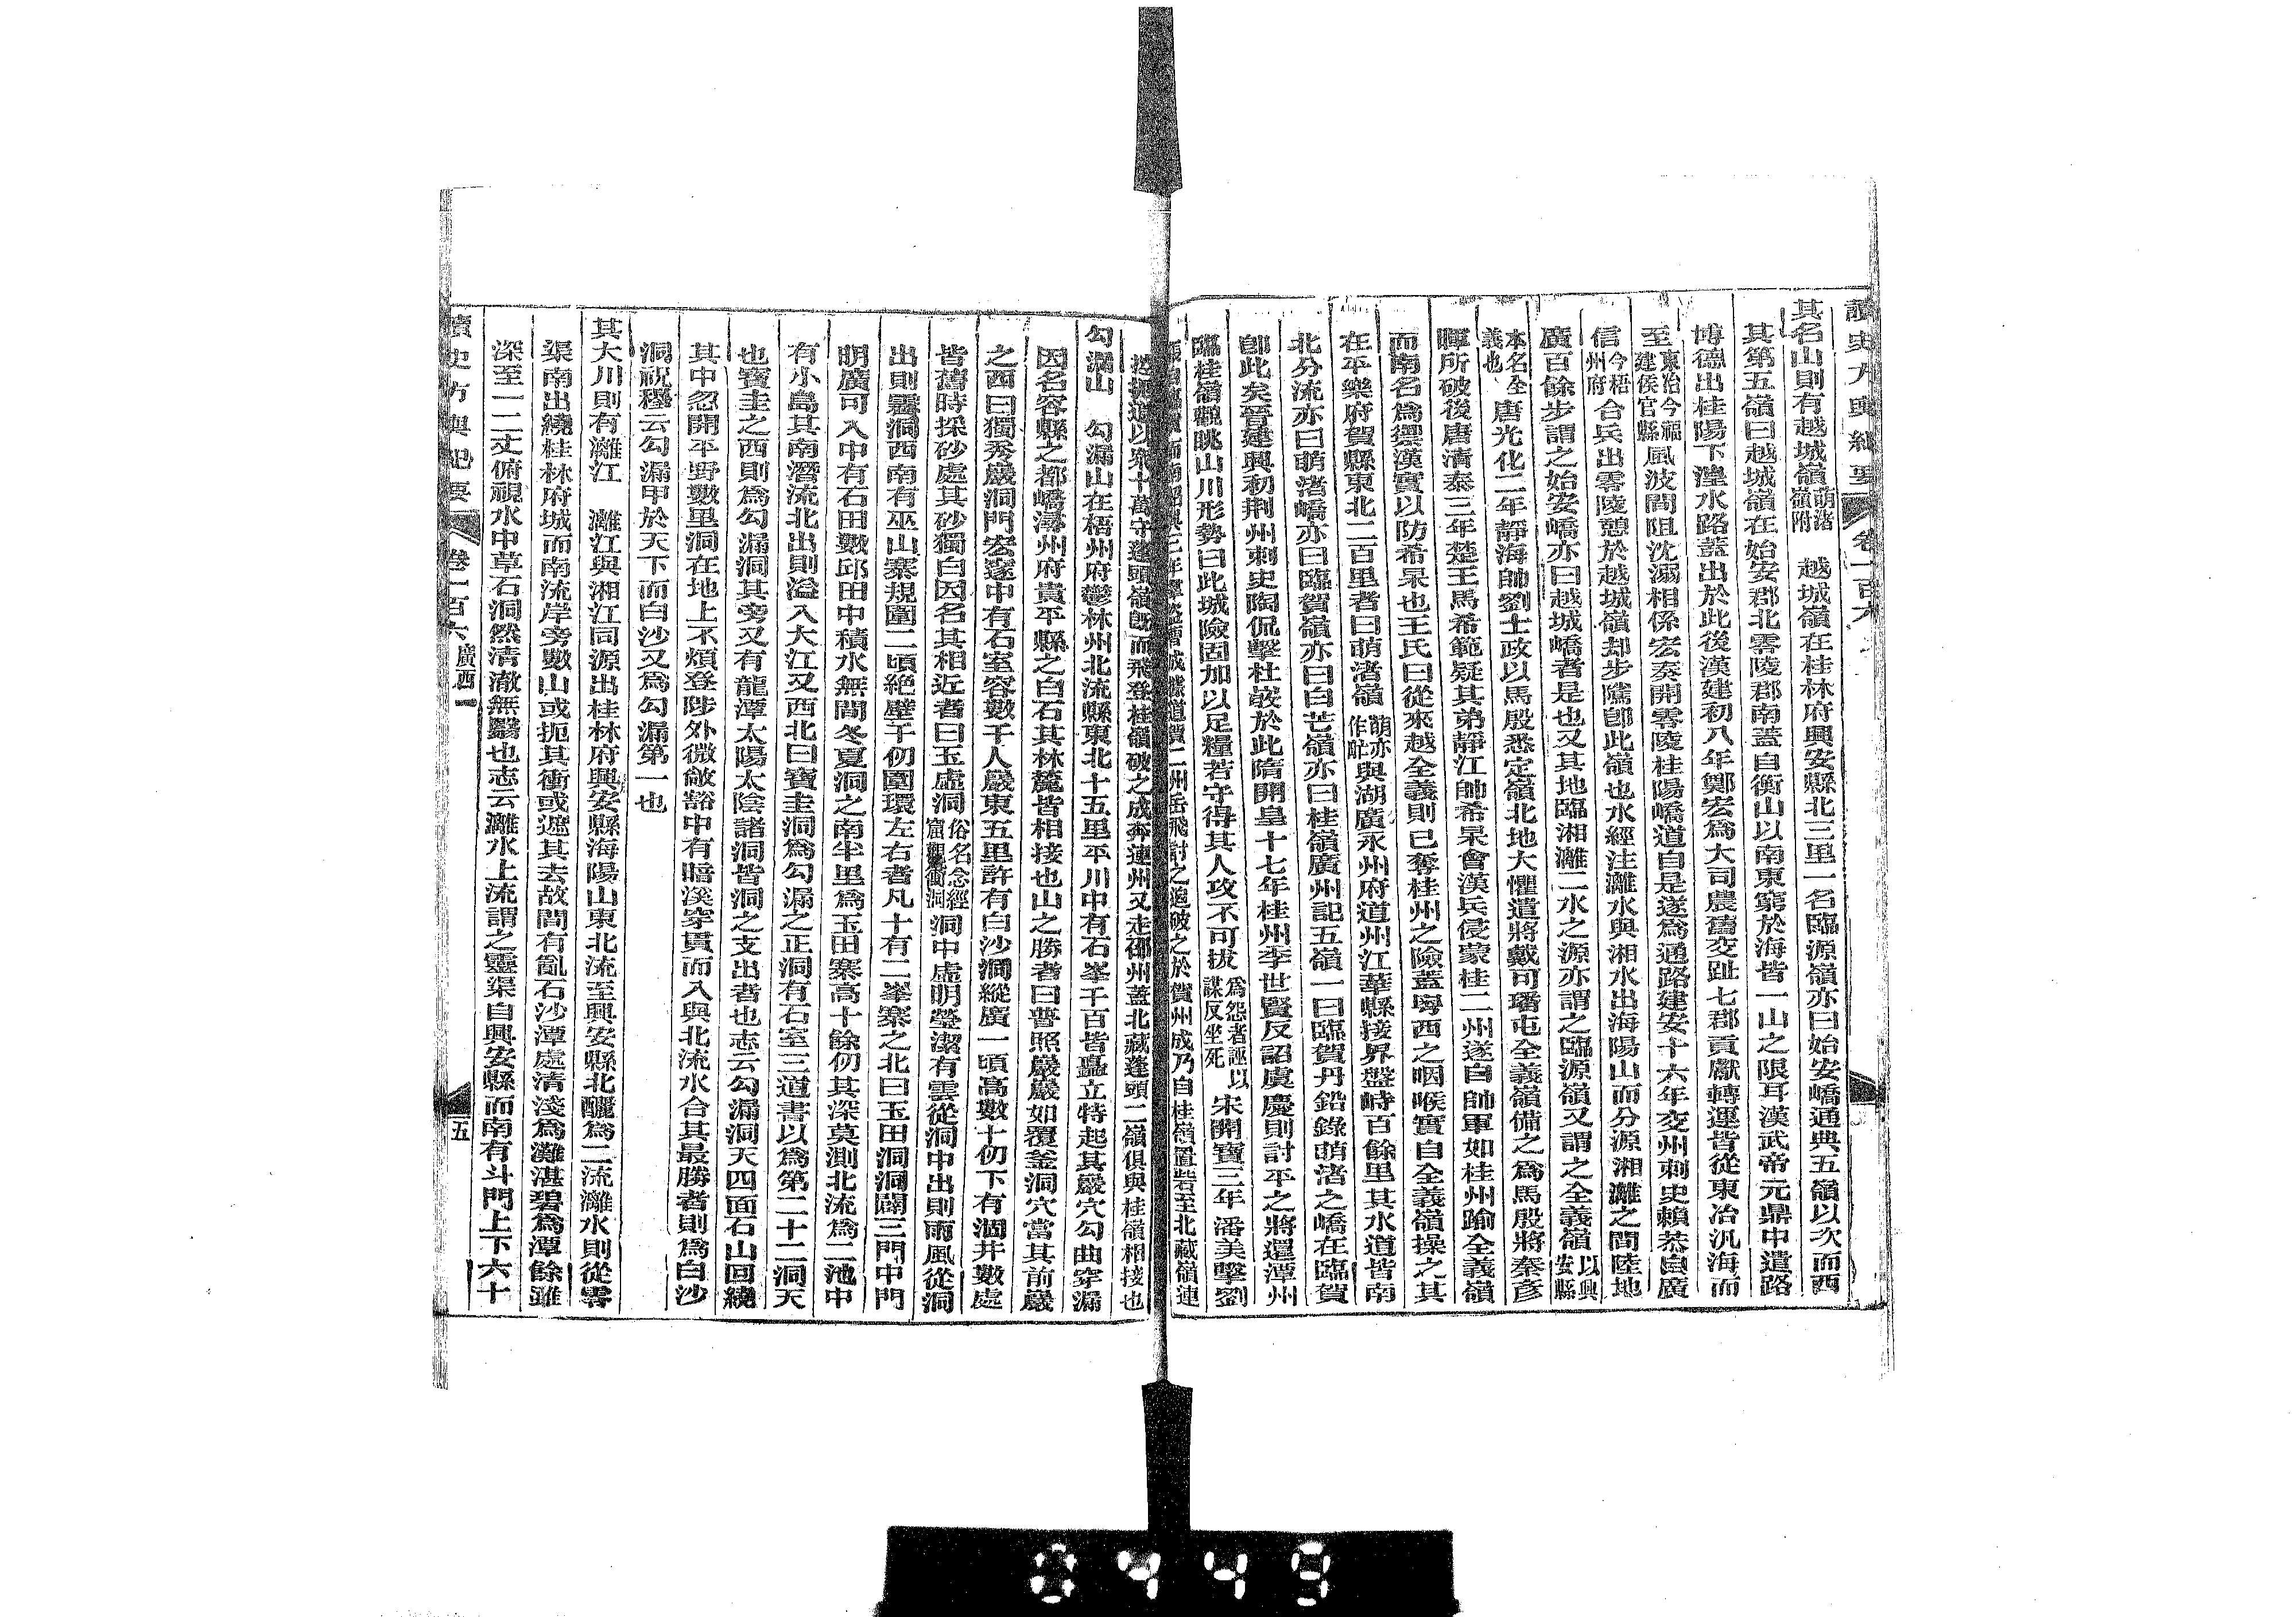 讀史方輿紀要 卷一百六
其名山則有越城嶺萌渚嶺附 越城嶺在桂林府興安縣北三里一名臨源嶺亦曰始安嶠通典五嶺以次而西
其第五嶺曰越城嶺在始安郡北零陵郡南蓋自衡山以南東窮於海皆一山之限耳漢武帝元鼎中遣路
博德出桂陽下湟水路蓋出於此後漢建初八年鄭宏為大司農舊交趾七郡貢獻轉運皆從東冶汎海而
至東冶今福建侯官縣風波間阻沈溺相係宏奏開零陵桂陽嶠道自是遂為通路建安十六年交州刺史賴恭自廣
信今梧州府合兵出零陵憩於越城嶺却步隲卽此嶺也水經注灕水與湘水出海陽山而分源湘灕之間陸地
廣百餘步謂之始安嶠亦曰越城嶠者是也又其地臨湘灕二水之源亦謂之臨源嶺又謂之全義嶺以興安縣
本名全義也唐光化二年靜海帥劉士政以馬殷悉定嶺北地大懼遣將戴可璠屯全義嶺備之為馬殷將秦彥
暉所破後唐清泰三年楚王馬希範疑其弟靜江帥希杲會漢兵侵蒙桂二州遂自帥軍如桂州踰全義嶺
而南名為禦漢實以防希杲也王氏曰從來越全義則已奪桂州之險蓋粤西之咽喉實自全義嶺操之其
在平樂府賀縣東北二百里者曰萌渚嶺萌亦作甿與湖廣永州府道州江華縣接界盤峙百餘里其水道皆南
北分流亦曰萌渚嶠亦曰臨賀嶺亦曰白芒嶺亦曰桂嶺廣州記五嶺一曰臨賀丹鉛錄萌渚之嶠在臨賀
卽此矣晉建興初荆州刺史陶侃擊杜弢於此隋開皇十七年桂州李世賢反詔虞慶則討平之將還潭州
臨桂嶺觀眺山川形勢曰此城險固加以足糧若守得其人攻不可拔為怨者誣以謀反坐死 宋開寶三年潘美擊劉
二州岳飛討之追破之於賀州成乃自桂嶺置砦至北藏嶺連
控扼道以眾十萬守蓬頭嶺旣而飛登桂嶺破之成奔連州又走邵州蓋北藏蓬頭二嶺俱與桂嶺相接也
勾漏山 勾漏山在梧州府鬱林州北流縣東北十五里平川中有石峯千百皆矗立特起其巖穴勾曲穿漏
因名容縣之都嶠潯州府貴平縣之白石其林麓皆相接也山之勝者曰普照巖巖如覆釜洞穴當其前巖
之西曰獨秀巖洞門宏邃中有石室容數千人巖東五里許有白沙洞縱廣一頃高數十仞下有涸井數處
皆舊時採砂處其砂獨白因名其相近者曰玉虛洞俗名念經窟觀衝洞洞中虛明瑩潔有雲從洞中出則雨風從洞
出則霽洞西南有巫山寨規圍二頃絶壁千仞圍環左右者凡十有二峯寨之北曰玉田洞洞闢三門中門
明廣可入中有石田數邱田中積水無間冬夏洞之南半里為玉田寨高十餘仞其深莫測北流為二池中
有小島其南潛流北出則溢入大江又西北曰寶圭洞為勾漏之正洞有石室三道書以為第二十二洞天
也寶圭之西則為勾漏洞其旁又有龍潭太陽太陰諸洞皆洞之支出者也志云勾漏洞天四面石山回繞
其中忽開平野數里洞在地上不煩登陟外微敞豁中有暗溪穿貫而入與北流水合其最勝者則為白沙
洞祝穆云勾漏甲於天下而白沙又為勾漏第一也
其大川則有灕江 灕江與湘江同源出桂林府興安縣海陽山東北流至興安縣北釃為二流灕水則從零
渠南出繞桂林府城而南流岸旁數山或扼其衝或遮其去故間有亂石沙潭處清淺為灘湛碧為潭餘雖
深至一二丈俯視水中草石洞然清澈無翳也志云灕水上流謂之靈渠自興安縣而南有斗門上下六十
讀史方輿紀要 卷一百六 廣西一 五
0449